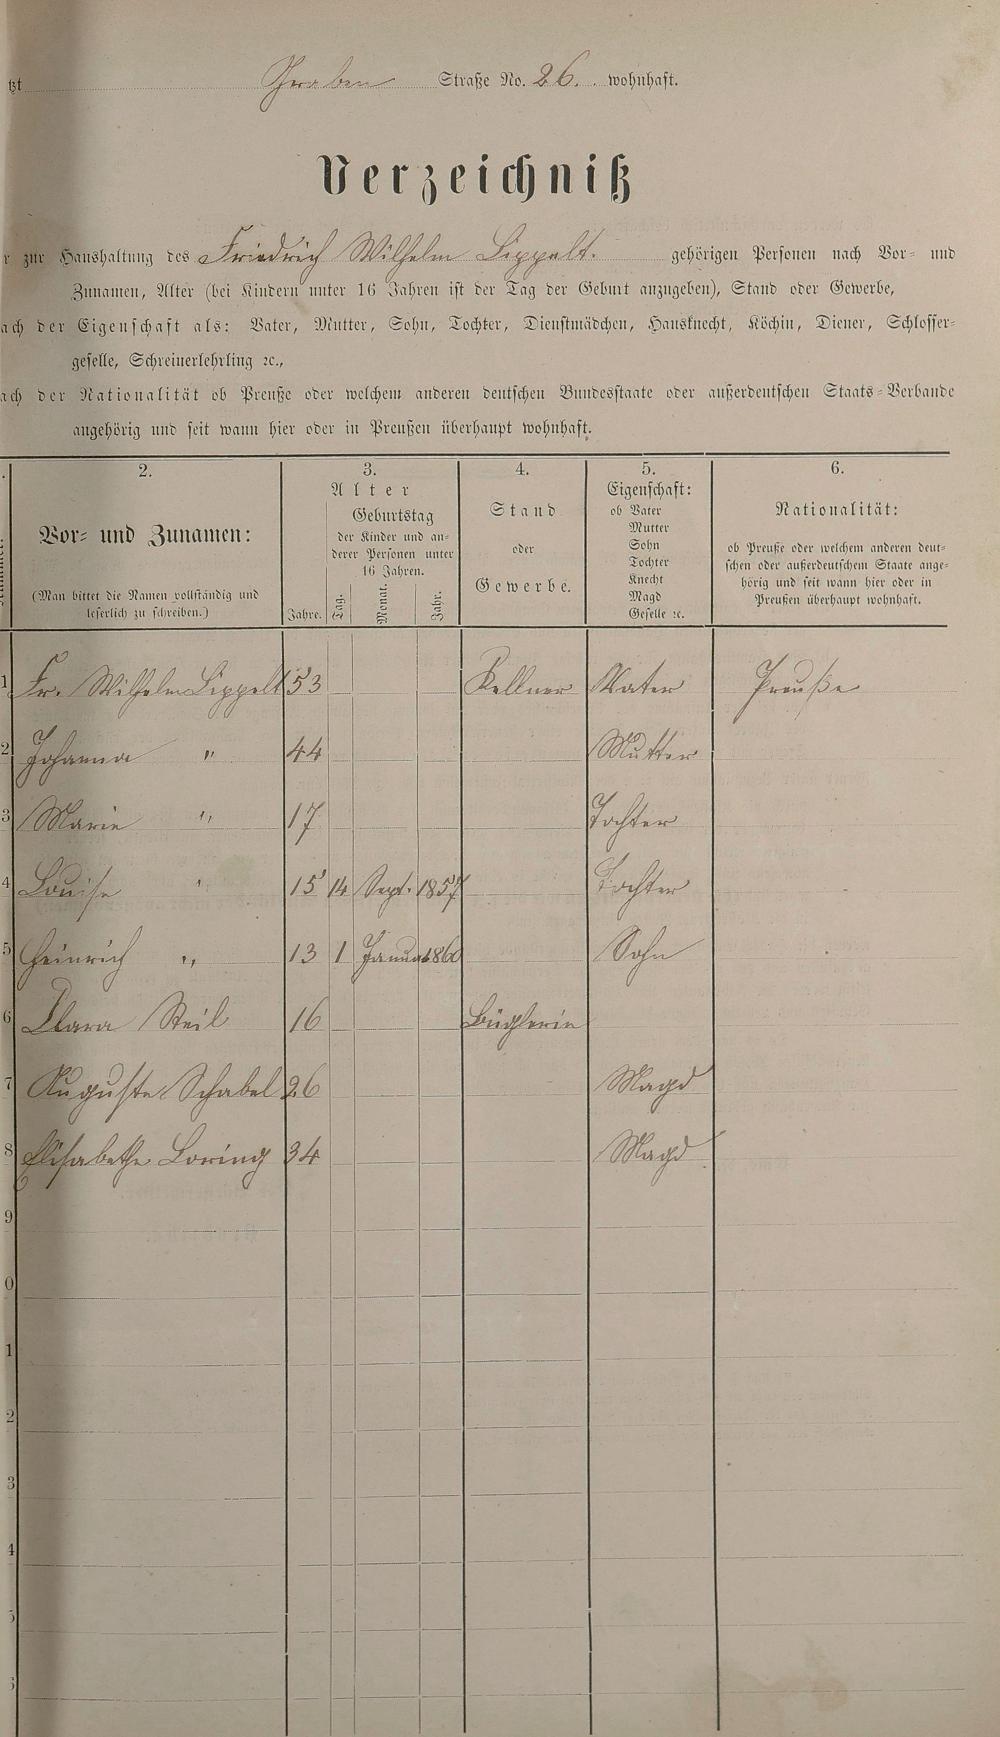 tzt Graben Straße No. 26. wohnhaft.
Verzeichniß
r zur Haushaltung des Friedrich Wilhelm Lippelt. gehörigen Personen nach Vor- und
Zunamen, Alter (bei Kindern unter 16 Jahren ist der Tag der Geburt anzugeben), Stand oder Gewerbe,
ach der Eigenschaft als: Vater, Mutter, Sohn, Tochter, Dienstmädchen, Hausknecht, Köchin, Diener, Schlosser-
geselle, Schreinerlehrling ꝛc.,
ach der Nationalität ob Preuße oder welchem anderen deutschen Bundesstaate oder außerdeutschen Staats-Verbande
angehörig und seit wann hier oder in Preußen überhaupt wohnhaft.
2.
Vor- und Zunamen:
(Man bittet die Namen vollständig und
leserlich zu schreiben.)
3.
Alter
Geburtstag
der Kinder und an-
derer Personen unter
16 Jahren.
Jahre. Tag. Monat. Jahr.
4.
Stand
oder
Gewerbe.
5.
Eigenschaft:
ob Vater
Mutter
Sohn
Tochter
Knecht
Magd
Geselle ꝛc.
6.
Nationalität:
ob Preuße oder welchem anderen deut-
schen oder außerdeutschem Staate ange-
hörig und seit wann hier oder in
Preußen überhaupt wohnhaft.
1 Fr. Wilhelm Lippelt 53 Kellner Vater Preuße
2 Johanna " 44 Mutter
3 Marie " 17 Tochter
4 Louise " 15 14 Sept. 1857 Tochter
5 Heinrich " 13 1 Januar 1860 Sohn
6 Clara Steil 16 Büglerin
7 Auguste Schabel 26 Magd
8 Elisabethe Loring 34 Magd
9
0
1
2
3
4
5
6